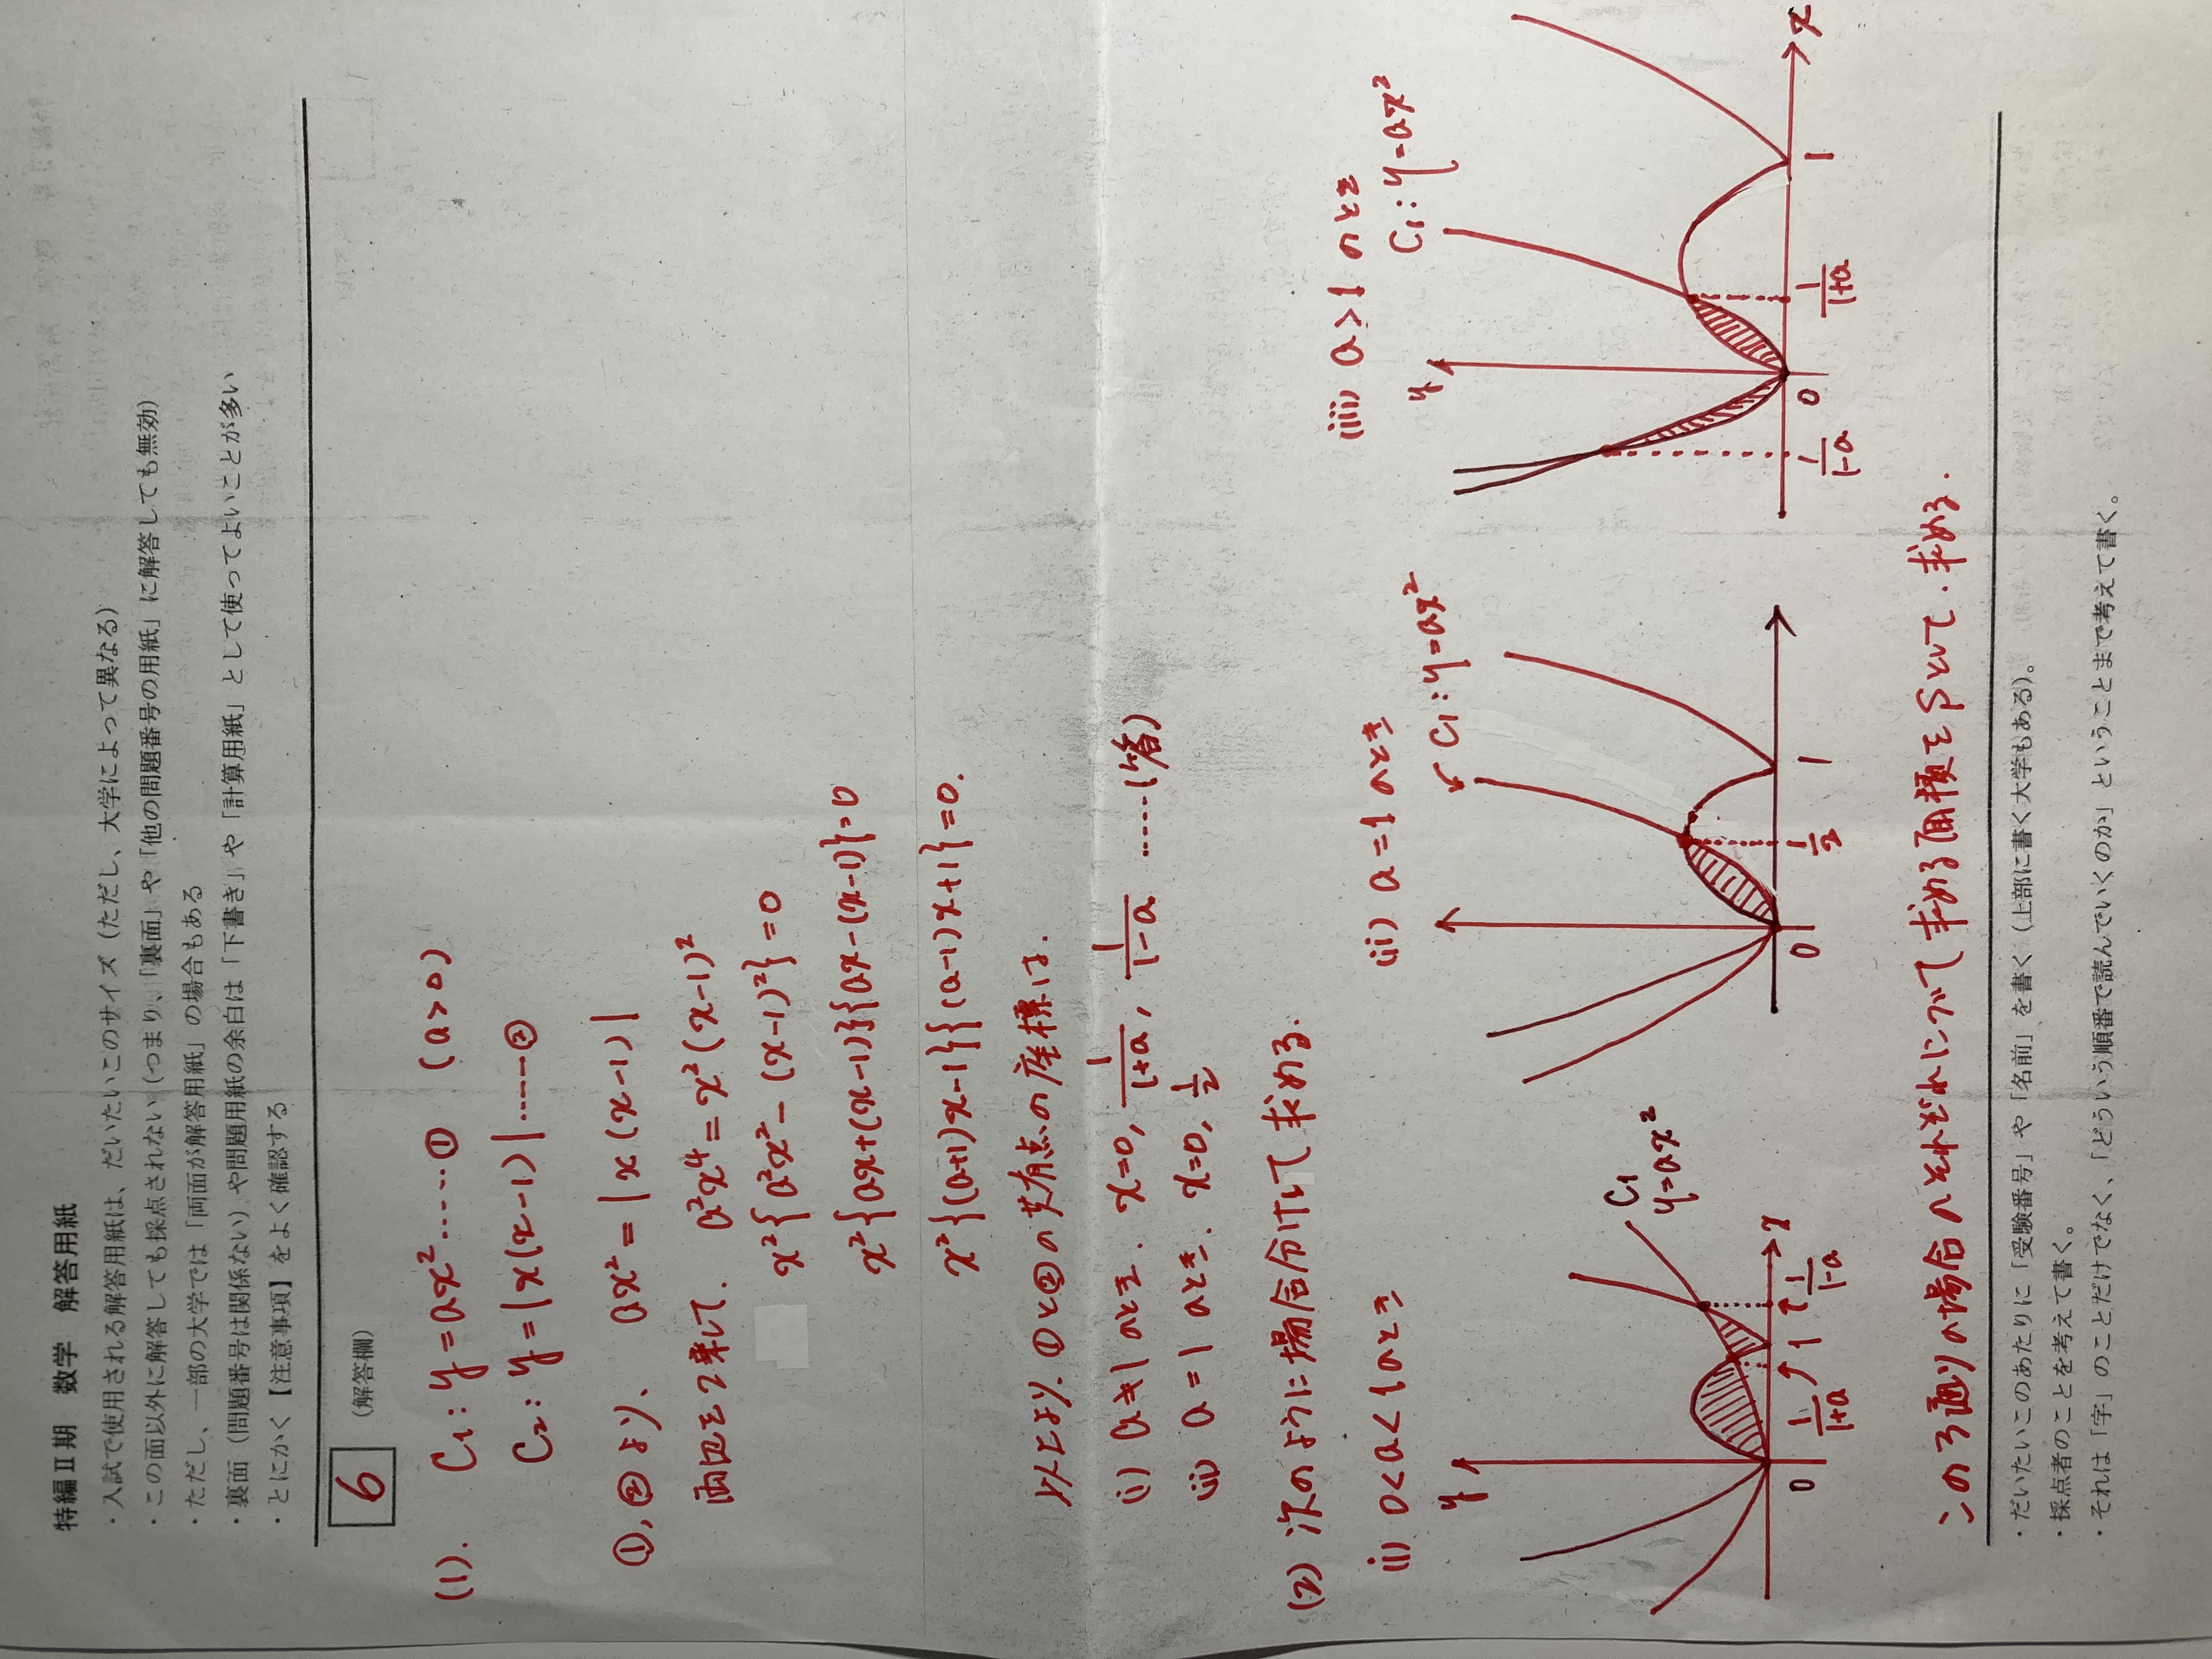 特編Ⅱ期　数学　解答用紙
・入試で使用される解答用紙は、だいたいこのサイズ（ただし、大学によって異なる）
・この面以外に解答しても採点されない（つまり、「裏面」や「他の問題番号の用紙」に解答しても無効）
・ただし、一部の大学では「両面が解答用紙」の場合もある
・裏面（問題番号は関係ない）や問題用紙の余白は「下書き」や「計算用紙」として使ってよいことが多い
・とにかく【注意事項】をよく確認する
6
（解答欄）
(1). C₁: y=ax² ……① (a>0)
C₂: y=|x(x-1)| ……②
①,②より、 ax²=|x(x-1)|
両辺を2乗して. a²x⁴=x²(x-1)²
x²{a²x²-(x-1)²}=0
x²{ax+(x-1)}{ax-(x-1)}=0
x²{(a+1)x-1}{(a-1)x+1}=0.
以上より. ①と②の共有点の座標は.
(i) a≠1のとき. x=0, 1/(1+a), 1/(1-a) ……(答)
(ii) a=1のとき. x=0, 1/2
(2) 次のように場合分けして求める.
(i) 0<a<1のとき
y
C₁
y=ax²
x
0
1/(1+a)
1
1/(1-a)
(ii) a=1のとき
C₁: y=ax²
0
1/2
1
(iii) a>1のとき
y
C₁: y=ax²
x
1/(1-a)
0
1/(1+a)
1
この3通りの場合のそれぞれについて求める面積をSとして. 求める.
・だいたいこのあたりに「受験番号」や「名前」を書く（上部に書く大学もある）。
・採点者のことを考えて書く。
・それは「字」のことだけでなく、「どういう順番で読んでいくのか」ということまで考えて書く。